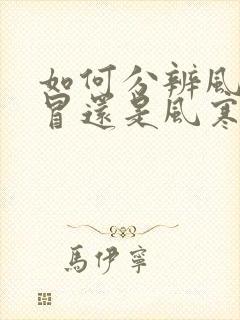 如何分辨風
冒還是風寒
馬伊寧